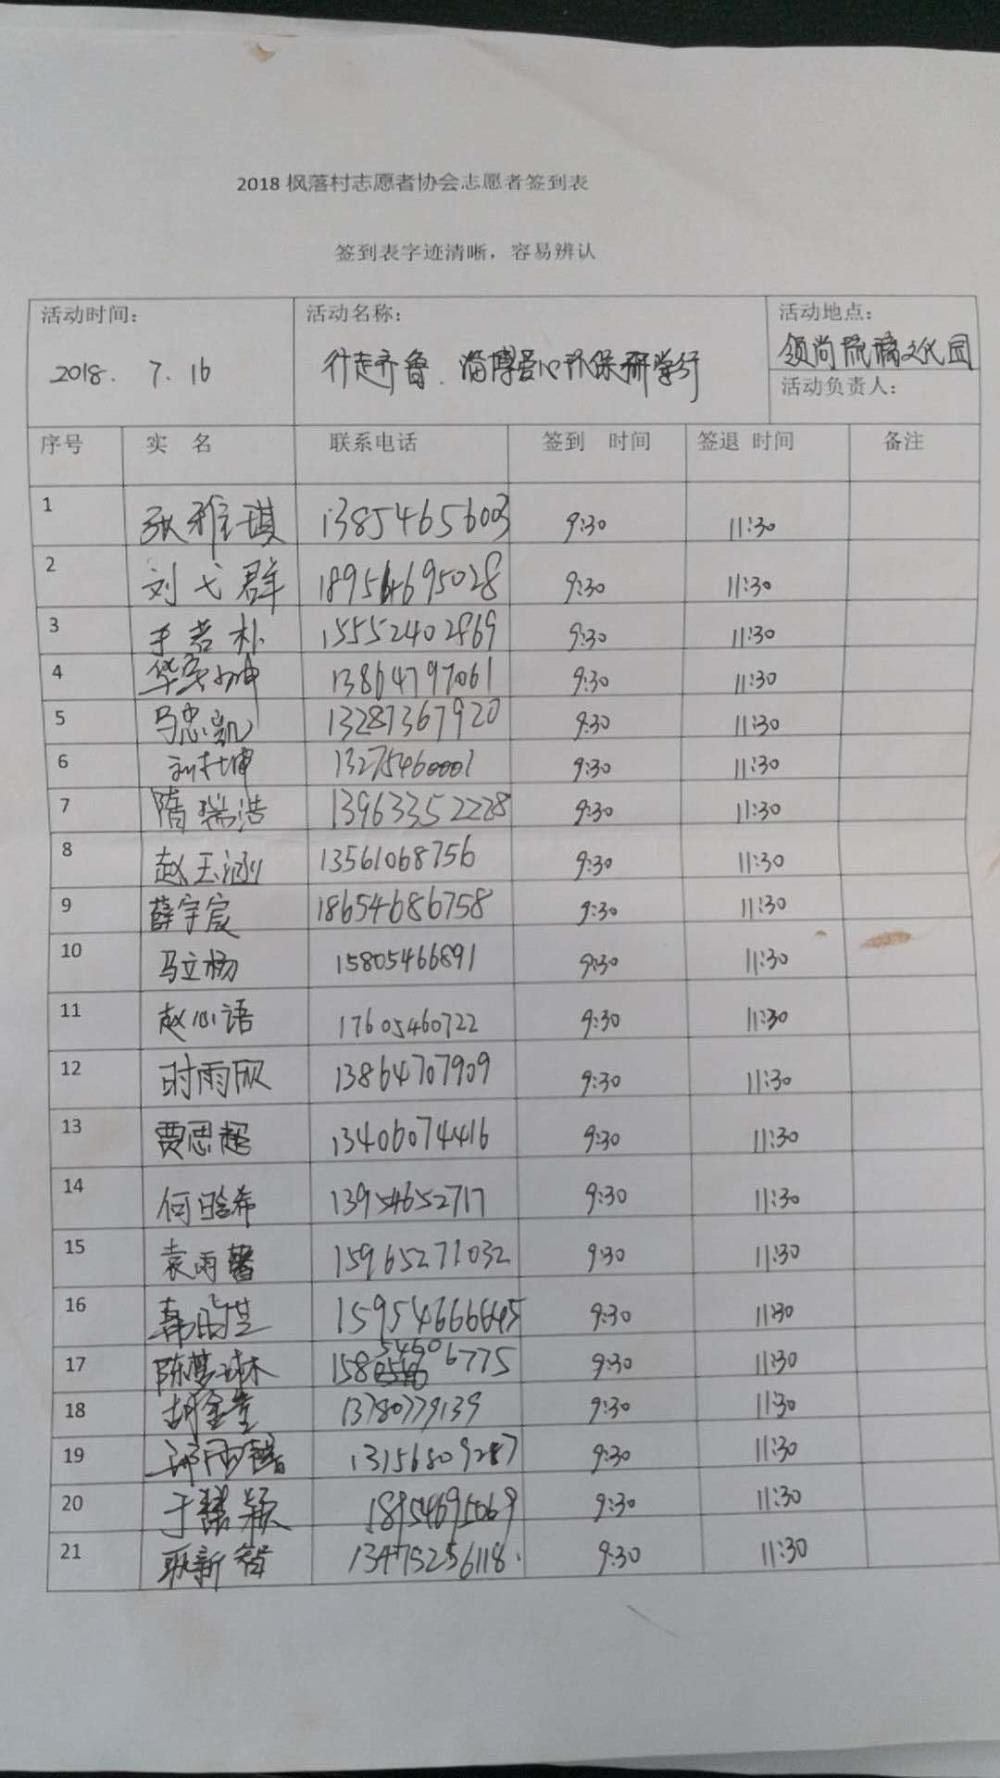 2018 枫落村志愿者协会志愿者签到表
签到表字迹清晰，容易辨认
活动时间： 活动名称： 活动地点：
2018. 7. 16 行走齐鲁.淄博爱心环保研学行 领尚琉璃文化园
活动负责人：
序号 实 名 联系电话 签到 时间 签退 时间 备注
1 张雅琪 13854656003 9:30 11:30
2 刘弋群 18954695028 9:30 11:30
3 若朴 15552402869 9:30 11:30
4 华 坤 13864797061 9:30 11:30
5 马忠凯 13287367920 9:30 11:30
6 坤 13275460001 9:30 11:30
7 隋瑞浩 13963352228 9:30 11:30
8 赵玉涵 13561068756 9:30 11:30
9 薛宇宸 18654686758 9:30 11:30
10 马立杨 15805466891 9:30 11:30
11 赵心语 17605460722 9:30 11:30
12 时雨欣 13864707909 9:30 11:30
13 贾思超 13406074416 9:30 11:30
14 何晗希 13954652717 9:30 11:30
15 袁雨馨 15965271032 9:30 11:30
16 韩 9:30 11:30
17 陈梦琳 15854606775 9:30 11:30
18 胡金 13780779139 9:30 11:30
19 雨 13156809287 9:30 11:30
20 于慧颖 18954695069 9:30 11:30
21 耿新智 13475256118. 9:30 11:30